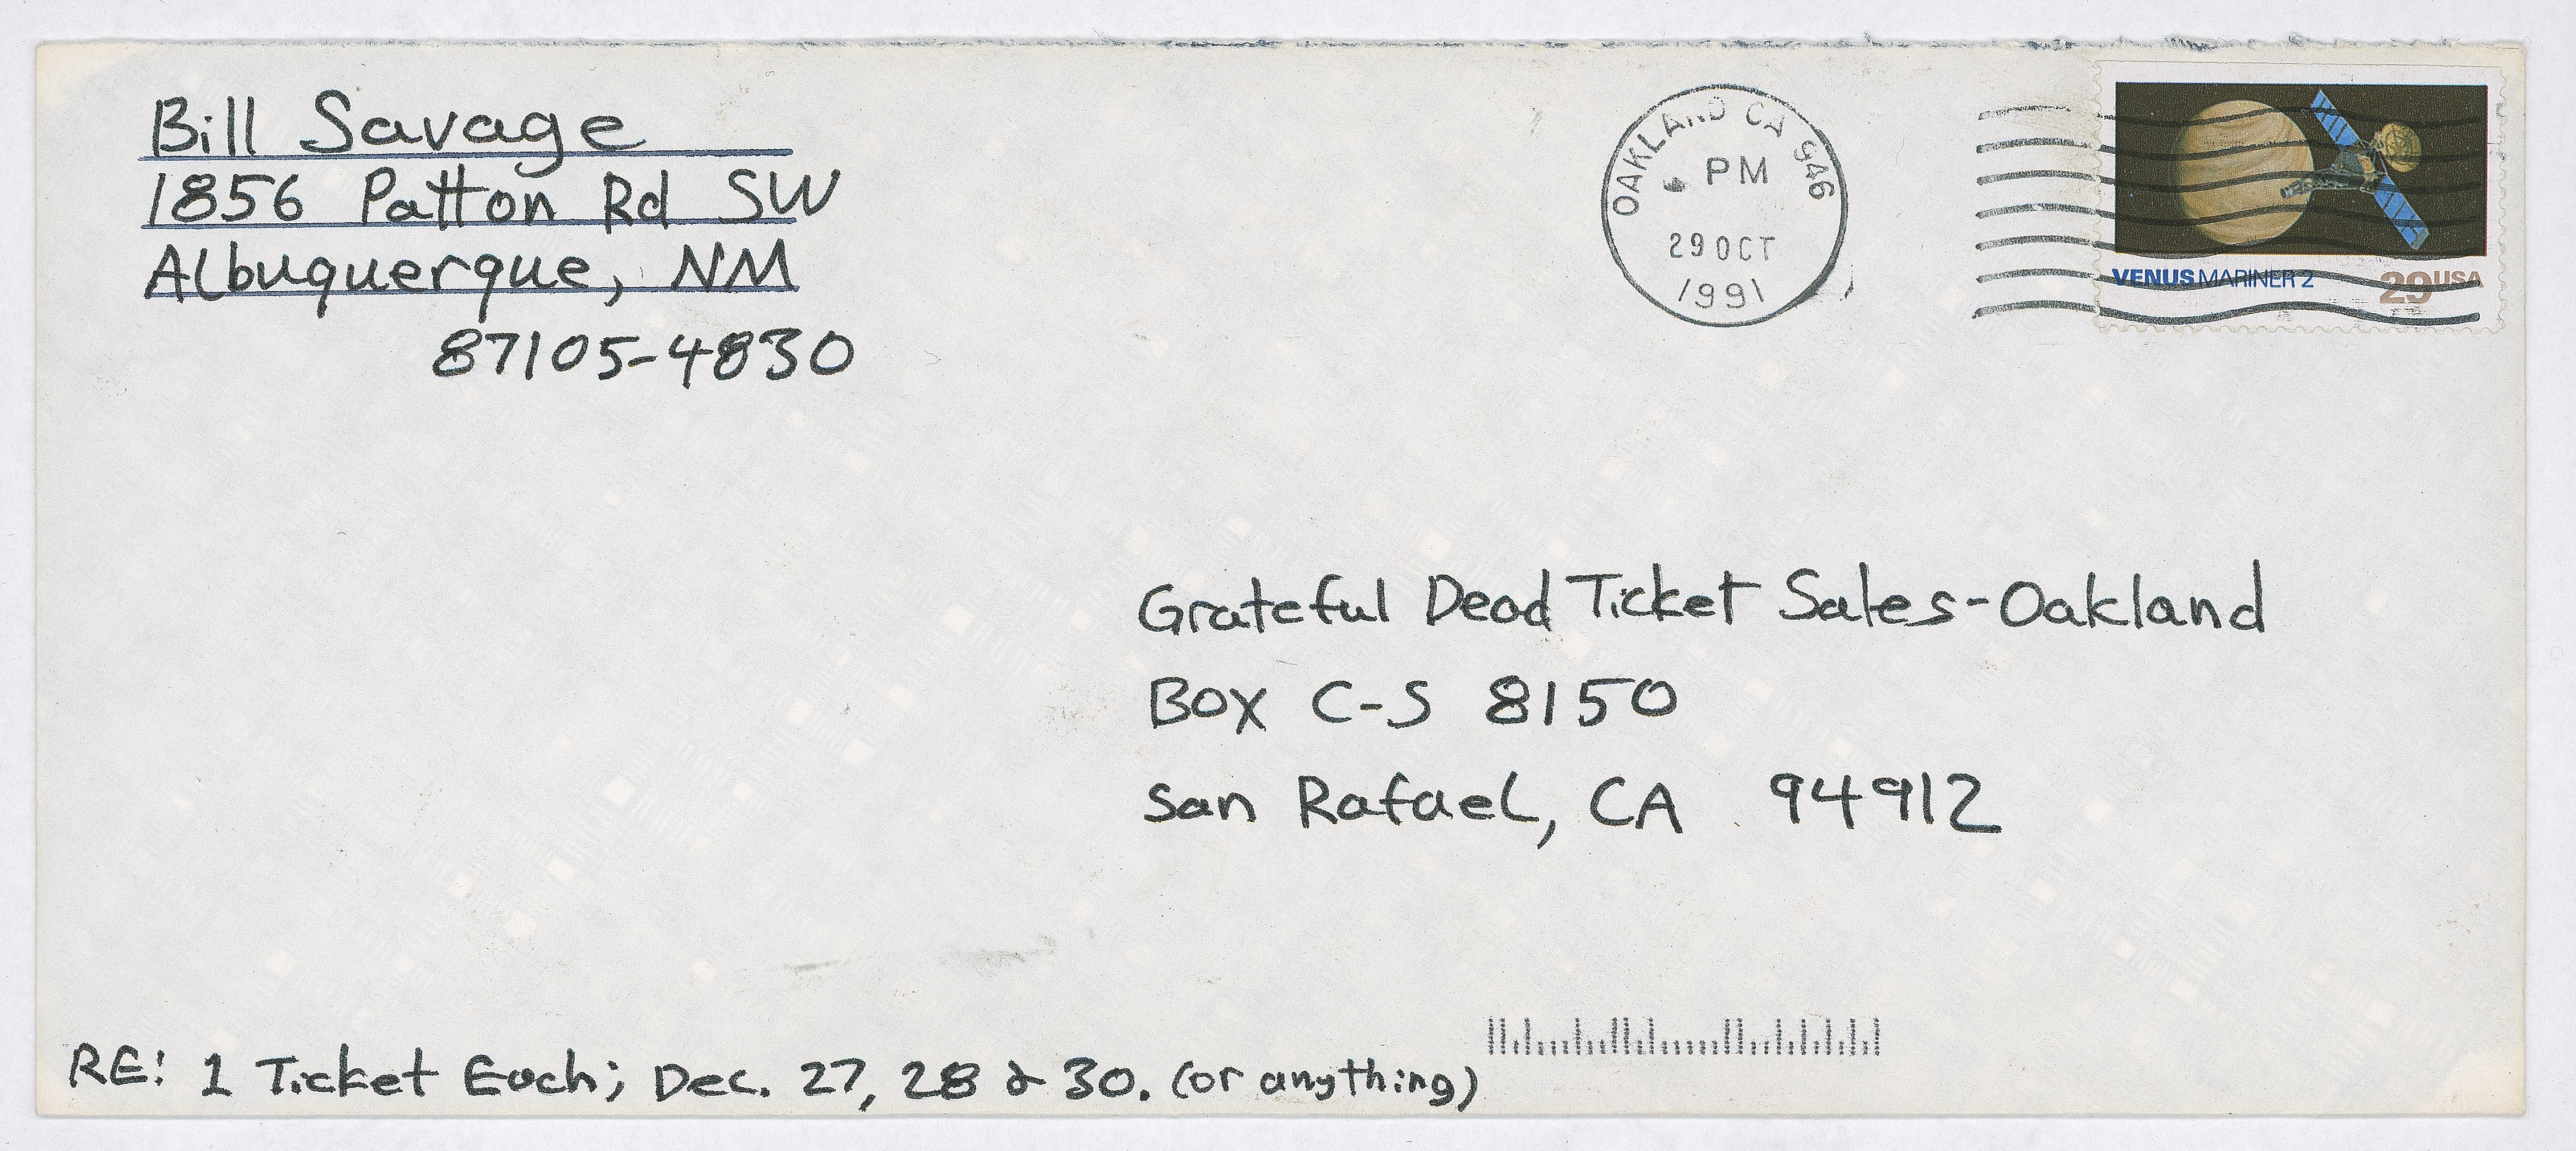 Bill Savage
1856 Patton Rd SW
Albuquerque, NM
87105-4830
OAKLAND CA 946
PM
29 OCT
1991
VENUS MARINER 2
29 USA
Grateful Dead Ticket Sales-Oakland
Box C-S 8150
San Rafael, CA 94912
RE: 1 Ticket Each; Dec. 27, 28 & 30. (or anything)